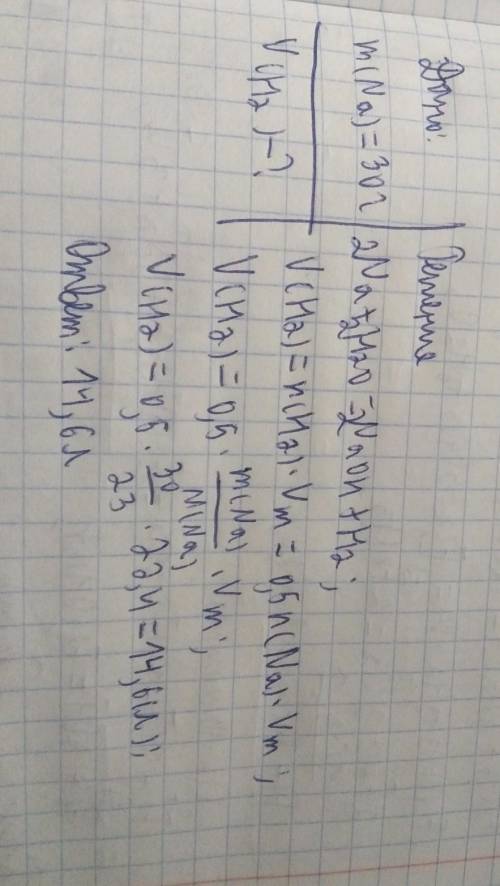 Дано:
m(Na)=30г
V(H2)-?
Решение
2Na+2H2O=2NaOH+H2;
V(H2)=n(H2)·Vm=0,5n(Na)·Vm;
V(H2)=0,5·m(Na)/M(Na)·Vm;
V(H2)=0,5·30/23·22,4=14,6(л);
Ответ: 14,6л